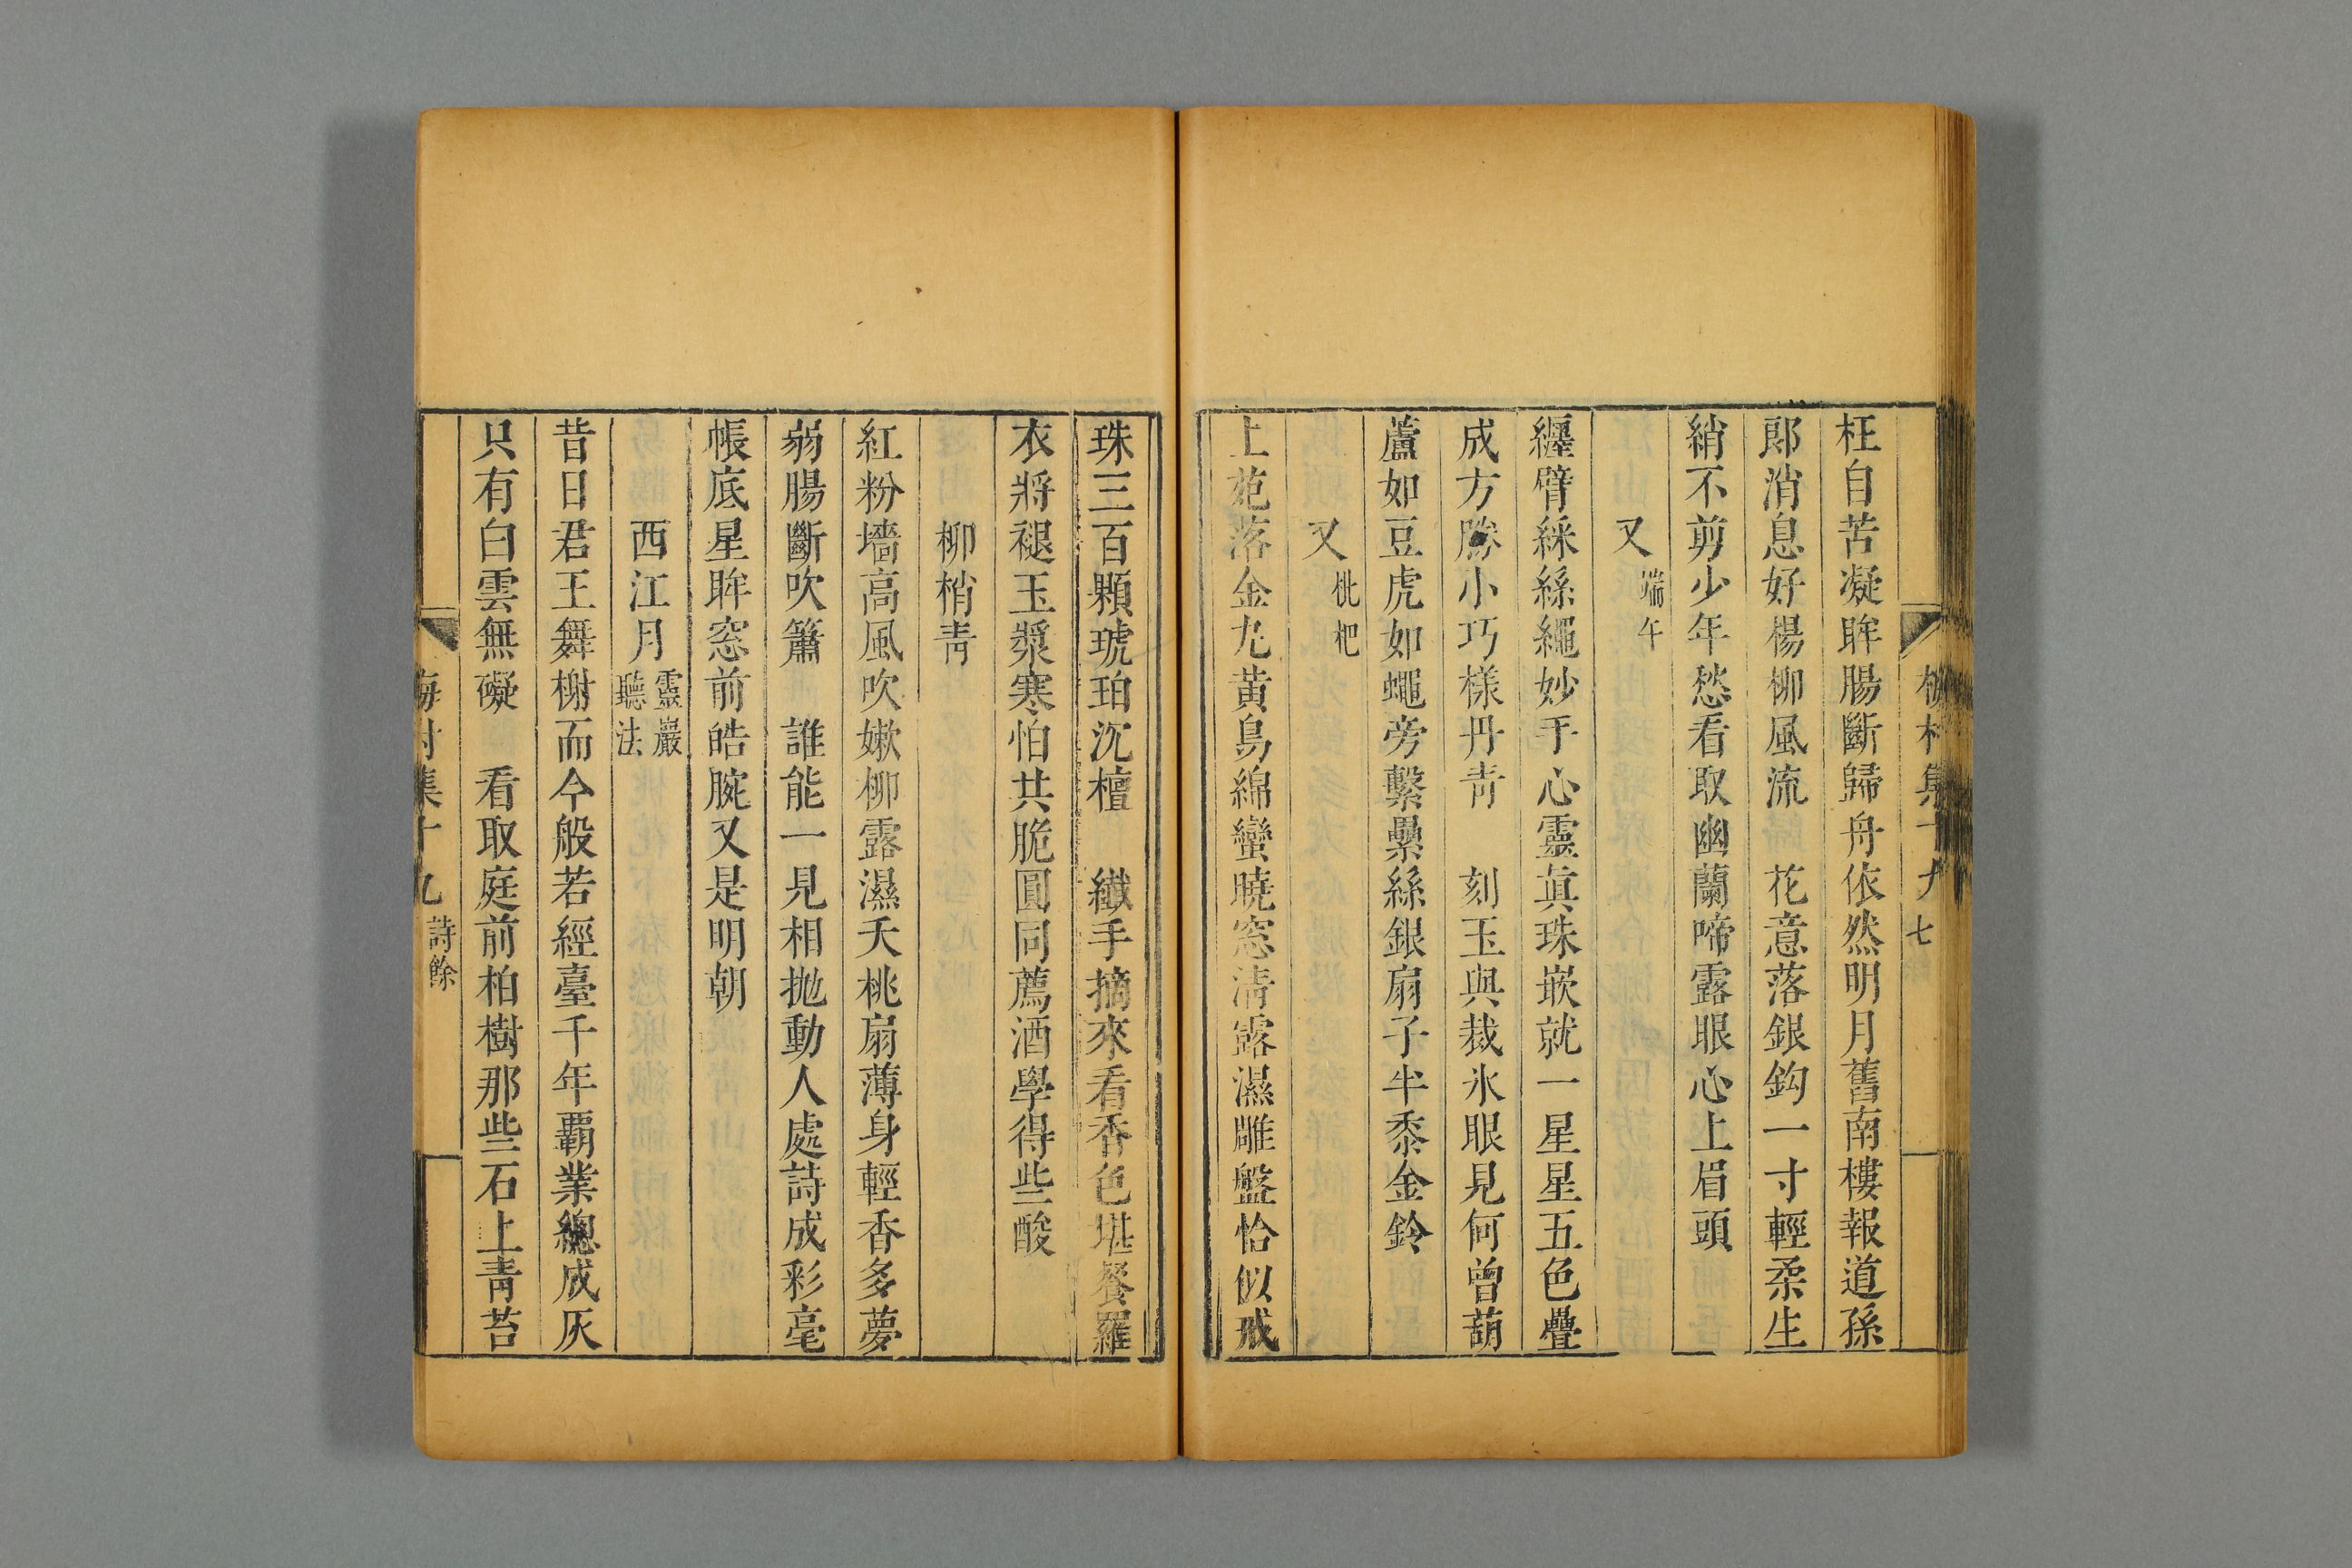 枉自苦凝眸腸斷歸舟依然明月舊南樓報道孫
郎消息好楊柳風流　花意落銀鈎一寸輕柔生
綃不剪少年愁看取幽蘭啼露眼心上眉頭
又　端午
纒臂綵絲繩妙手心靈真珠嵌就一星星五色疊
成方勝小巧樣丹青　刻玉與裁氷眼見何曾葫
蘆如豆虎如蠅旁繫纍絲銀扇子半黍金鈴
又　枇杷
上苑落金丸黃鳥綿蠻曉窓清露濕雕盤恰似戒
珠三百顆琥珀沉檀　纖手摘來看香色堪餐羅
衣將褪玉漿寒怕共脆圓同薦酒學得些酸
柳梢青
紅粉墻高風吹嫰柳露濕夭桃扇薄身輕香多夢
弱腸斷吹簫　誰能一見相拋動人處詩成彩毫
帳底星眸窓前皓腕又是明朝
西江月　靈巖聽法
昔日君王舞榭而今般若經臺千年覇業總成灰
只有白雲無礙　看取庭前柏樹那些石上青苔
梅村集十九　詩餘